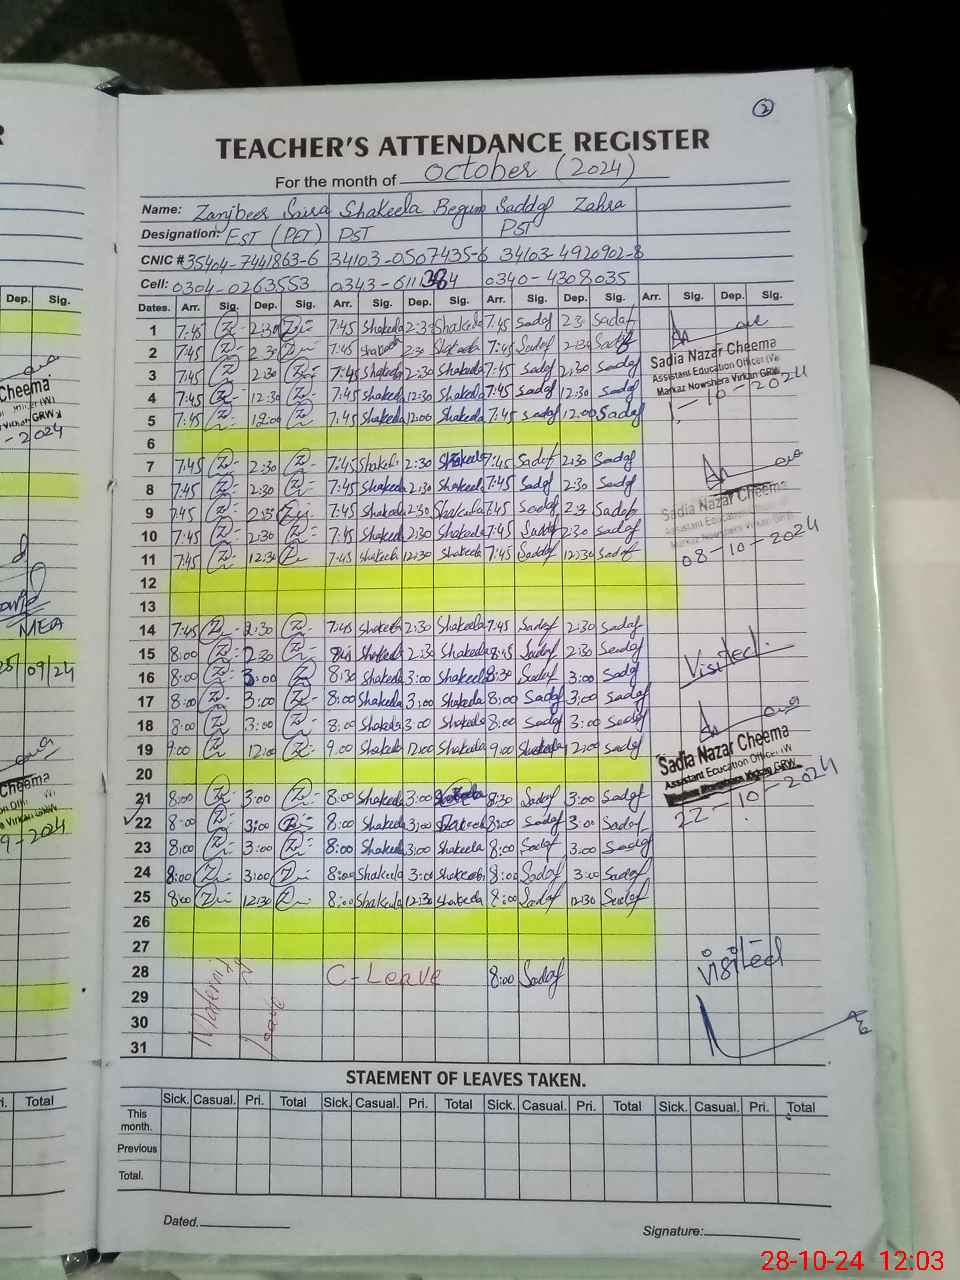 2
TEACHER'S ATTENDANCE REGISTER
For the month of October (2024)
Name: Zanjbeer Saira Shakeela Begum Saddaf Zahra
Designation: EST (PET) PST PST
CNIC # 35404-7441863-6 34103-0507435-6 34103-4920902-8
Cell: 0304-0263553 0343-611 0340-4308035
Dates. Arr. Sig. Dep. Sig. Arr. Sig. Dep. Sig. Arr. Sig. Dep. Sig. Arr. Sig. Dep. Sig.
1 7:45 2:30 7:45 Shakeela 2:30 Shakeela 7:45 Sadaf 2:30 Sadaf
2 7:45 2:30 7:45 Shakeela 2:30 Shakeela 7:45 Sadaf 2:30 Sadaf
3 7:45 2:30 7:45 Shakeela 2:30 Shakeela 7:45 Sadaf 2:30 Sadaf
4 7:45 12:30 7:45 Shakeela 12:30 Shakeela 7:45 Sadaf 12:30 Sadaf
5 7:45 12:00 7:45 Shakeela 12:00 Shakeela 7:45 Sadaf 12:00 Sadaf
Sadia Nazar Cheema
Assistant Education Officer (W)
Markaz Nowshera Virkan GRW
1-10-2024
6
7 7:45 2:30 7:45 Shakeela 2:30 Shakeela 7:45 Sadaf 2:30 Sadaf
8 7:45 2:30 7:45 Shakeela 2:30 Shakeela 7:45 Sadaf 2:30 Sadaf
9 7:45 2:30 7:45 Shakeela 2:30 Shakeela 7:45 Sadaf 2:30 Sadaf
10 7:45 2:30 7:45 Shakeela 2:30 Shakeela 7:45 Sadaf 2:30 Sadaf
11 7:45 12:30 7:45 Shakeela 12:30 Shakeela 7:45 Sadaf 12:30 Sadaf
Sadia Nazar Cheema
Assistant Education
08-10-2024
12
13
14 7:45 2:30 7:45 Shakeela 2:30 Shakeela 7:45 Sadaf 2:30 Sadaf
15 8:00 2:30 Shakeela 2:30 Shakeela Sadaf 2:30 Sadaf
16 8:00 3:00 8:30 Shakeela 3:00 Shakeela 8:30 Sadaf 3:00 Sadaf
Visited.
17 8:00 3:00 8:00 Shakeela 3:00 Shakeela 8:00 Sadaf 3:00 Sadaf
18 8:00 3:00 8:00 Shakeela 3:00 Shakeela 8:00 Sadaf 3:00 Sadaf
19 9:00 12:00 9:00 Shakeela 12:00 Shakeela 9:00 12:00 Sadaf
Sadia Nazar Cheema
Assistant Education Officer (W)
Markaz Nowshera Virkan GRW
22-10-2024
20
21 8:00 3:00 8:00 Shakeela 3:00 8:30 Sadaf 3:00 Sadaf
22 8:00 3:00 8:00 Shakeela 3:00 Shakeela 8:00 Sadaf 3:00 Sadaf
23 8:00 3:00 8:00 Shakeela 3:00 Shakeela 8:00 Sadaf 3:00 Sadaf
24 8:00 3:00 8:00 Shakeela 3:00 Shakeela 8:00 Sadaf 3:00 Sadaf
25 8:00 12:30 8:00 Shakeela 12:30 Shakeela 8:00 Sadaf 12:30 Sadaf
26
27
Visited
28 C-Leave 8:00 Sadaf
29
30
31
Leave
STAEMENT OF LEAVES TAKEN.
Sick. Casual. Pri. Total Sick. Casual. Pri. Total Sick. Casual. Pri. Total Sick. Casual. Pri. Total
This month.
Previous
Total.
Dated.
Signature:
R
Dep. Sig.
Cheema
GRW
-2024
MEA
09/24
Cheema
9-2024
Total
28-10-24 12:03